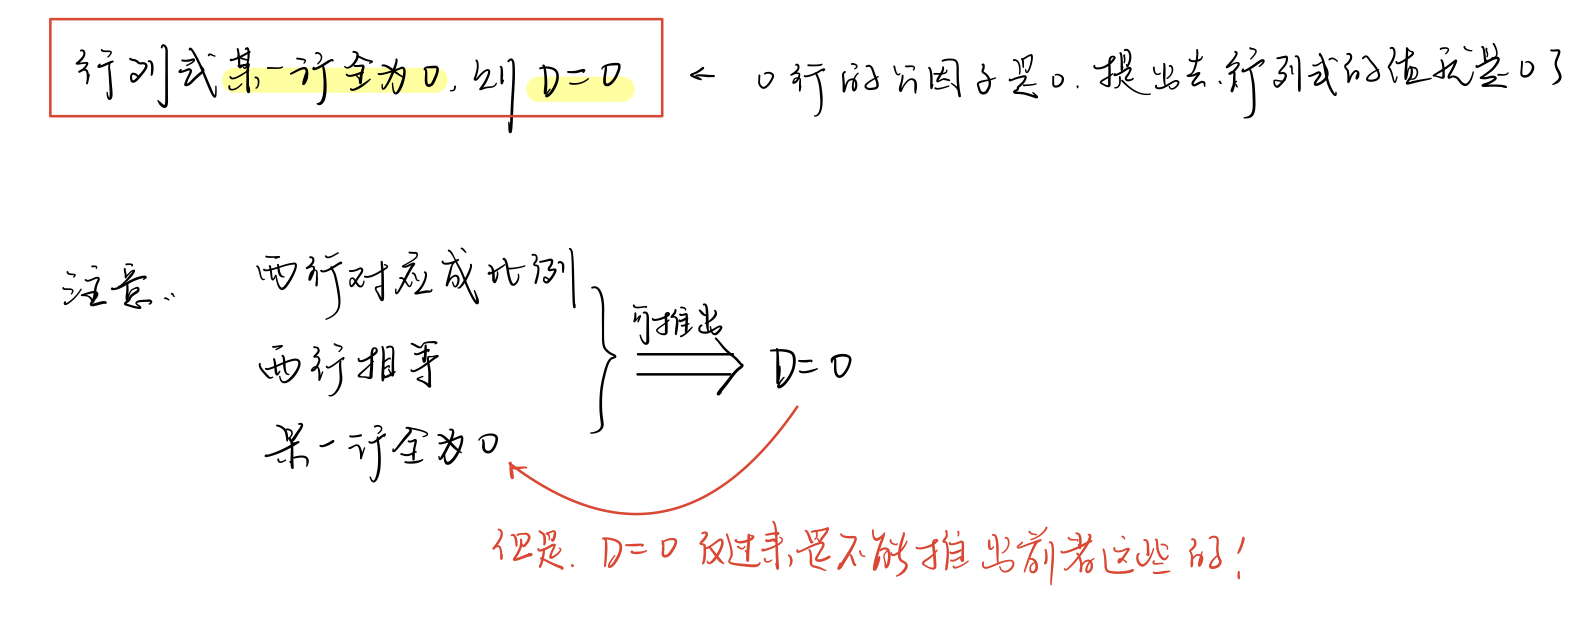 行列式某一行全为0,则D=0 ← 0行的公因子是0.提出去,行列式的值就是0了
注意:
两行对应成比例
两行相等
某一行全为0
可推出
D=0
但是.D=0反过来,是不能推出前者这些的!